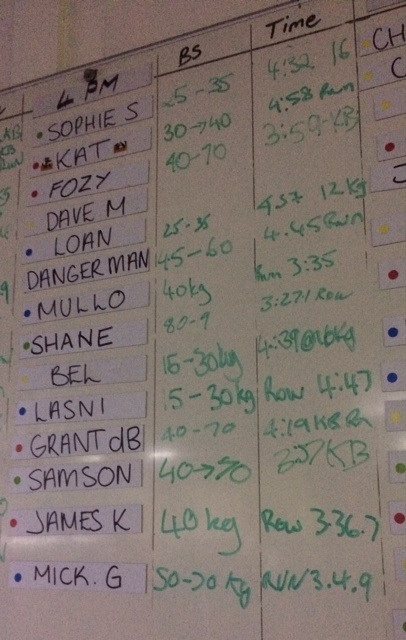 BS Time
4 PM
SOPHIE S 25-35 4:32 16
KAT 30→40 4:58 Run
FOZY 40-70 3:59-KB
DAVE M
LOAN 25-35 4:37 12kg
DANGERMAN 45-60 4.45 Run
MULLO 40kg Run 3:35
SHANE 80-9 3:27 Row
BEL 15-30kg 4:39@16kg
LASNI 15-30kg Row 4:47
GRANT dB 40-70 4:19 KB
SAMSON 40→70 KB
JAMES K 40kg Row 3.36.7
MICK. G 50-70kg RUN 3.4.9
CH
C
J